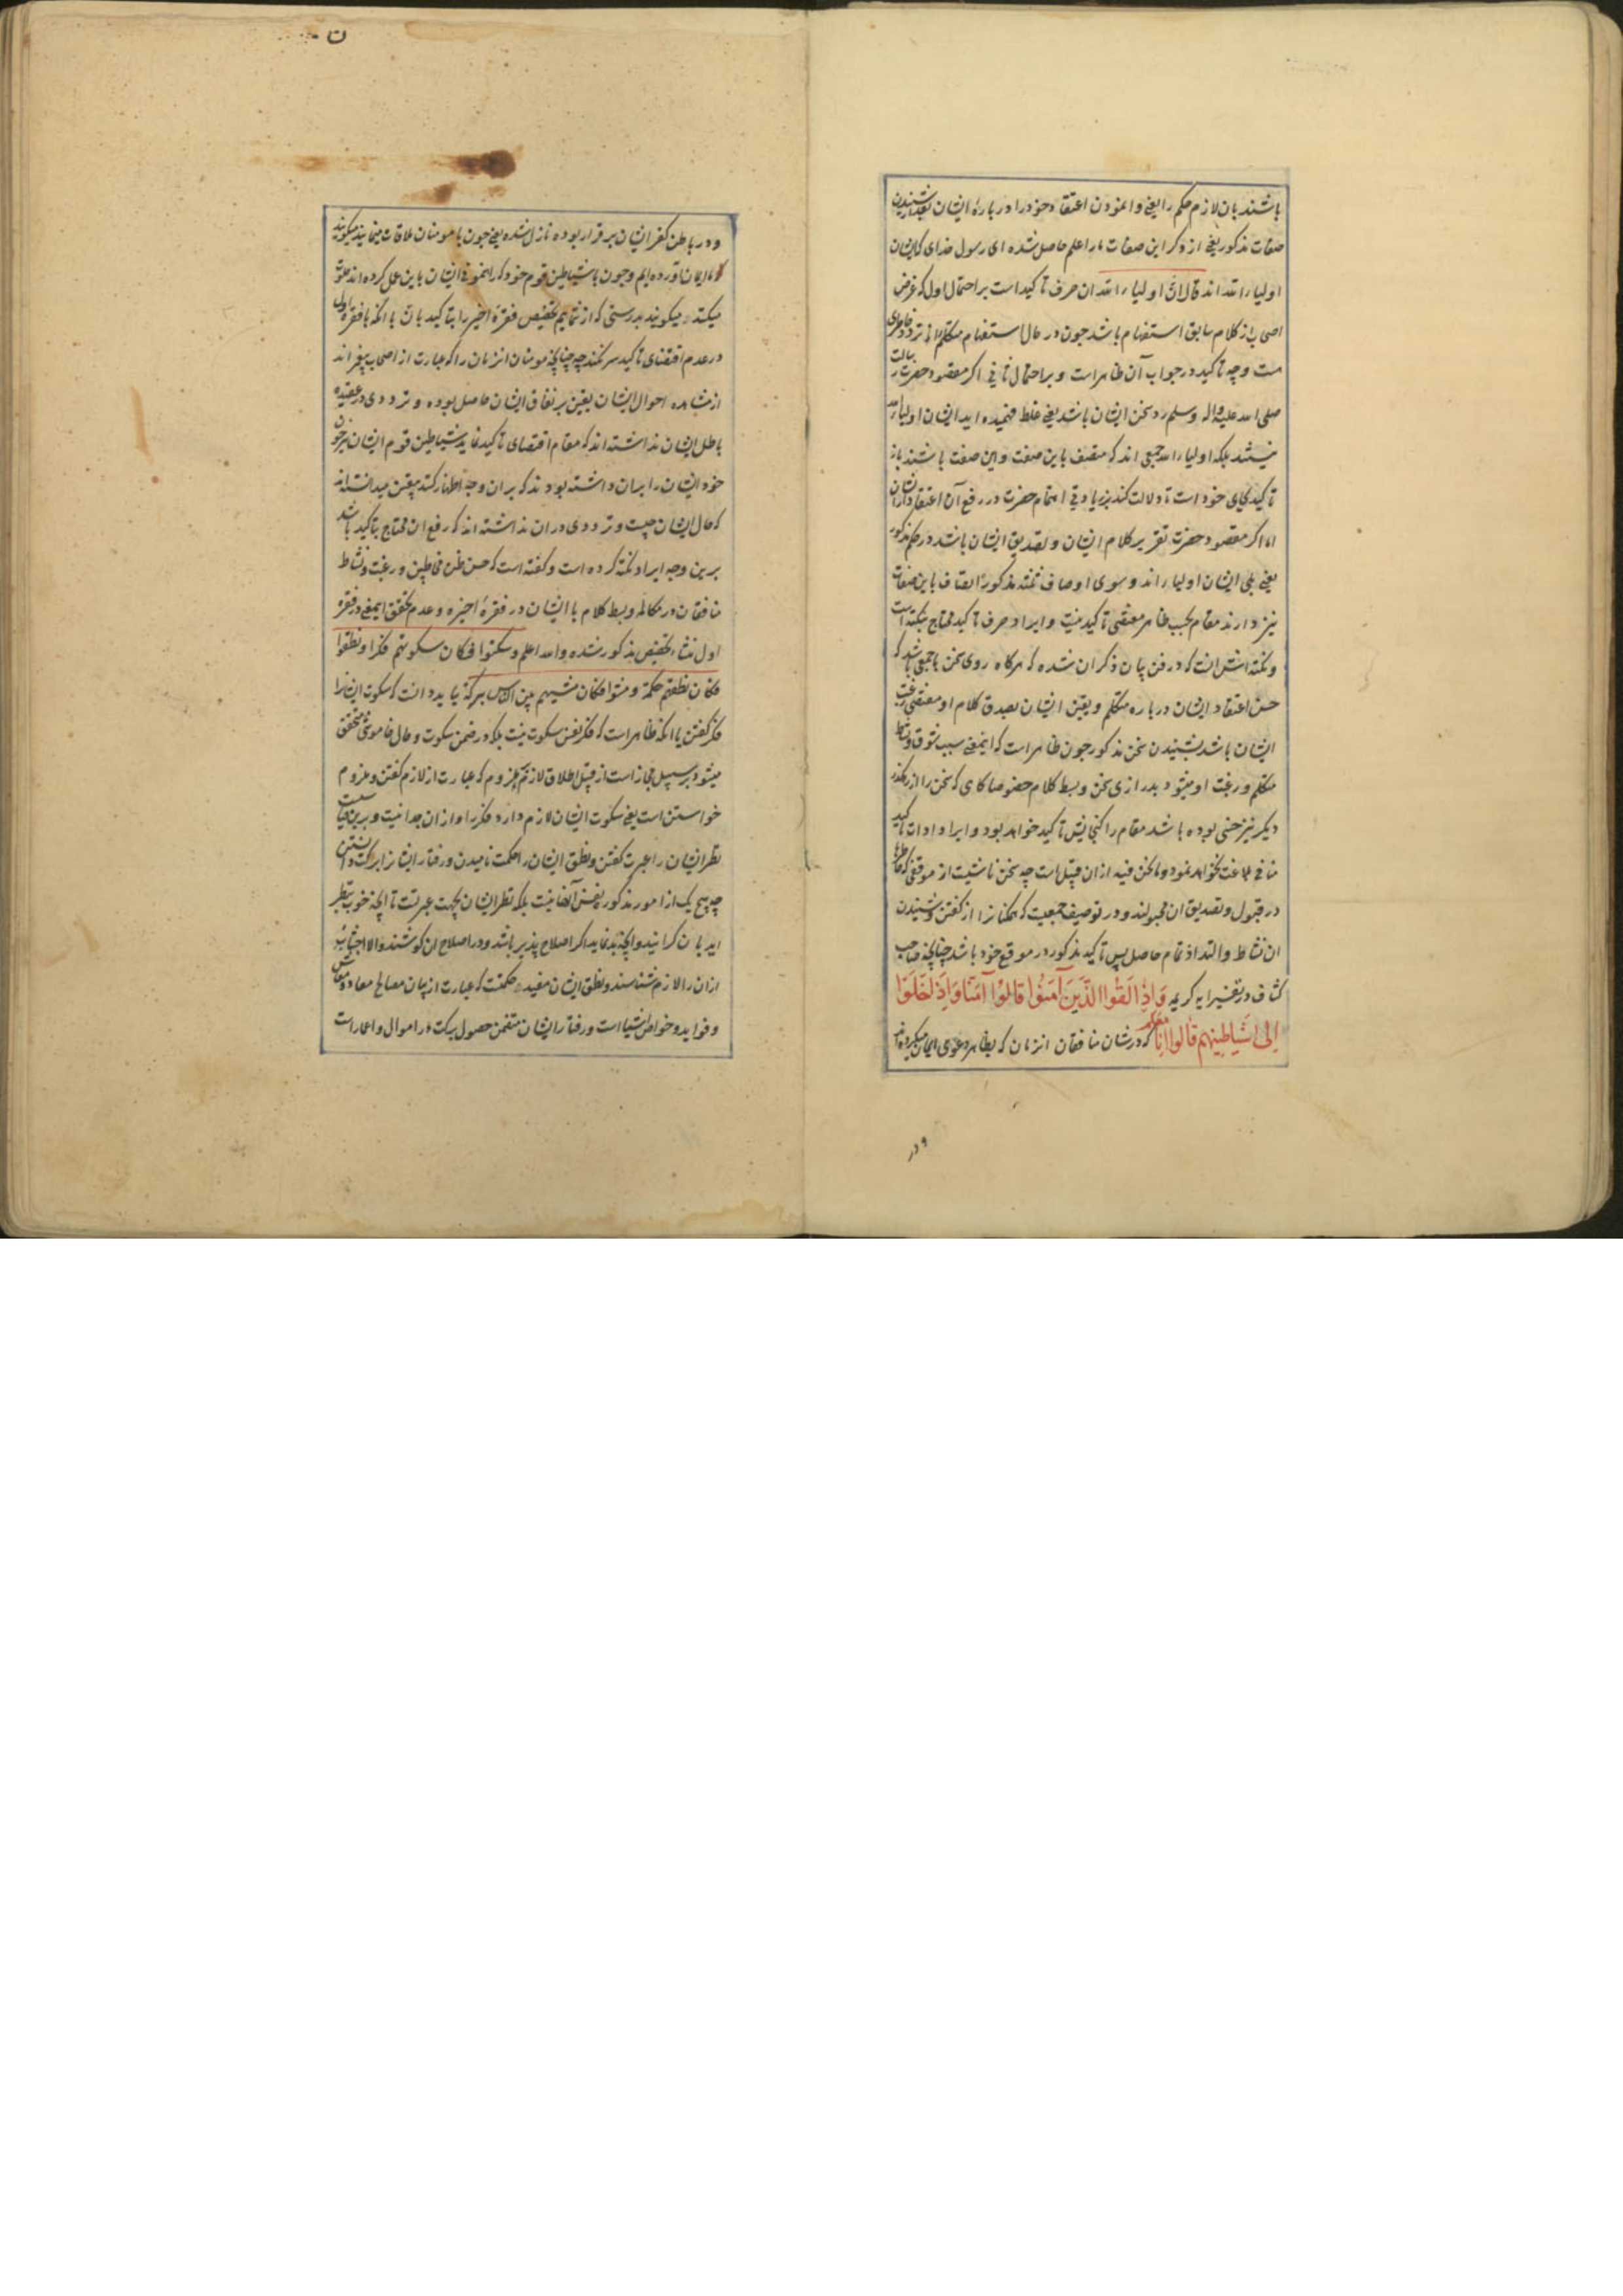 باشند بان لازم حکم را یعنی وانمودن اعتقاد خود را در باره ایشان بعد از شنیدن
صفات مذکور یعنی از ذکر این صفات ما را علم حاصل شده ای رسول خدای که ایشان
اولیاء الله اند قال ان اولیاء الله ان حرف تاکید است بر احتمال اول که غرض
اصحاب از کلام سابق استفهام باشد چون در حال استفهام متکلم را تردد خاطری
هست وجه تاکید در جواب آن ظاهر است و بر احتمال ثانی اکر مقصود حضرت رسالت
صلی الله علیه واله وسلم رد سخن ایشان باشد یعنی غلط فهمیده اید ایشان اولیاء الله
نیستند بلکه اولیاء الله جمعی اند که متصف باین صفت و این صفت باشند باز
تاکید بجای خود است تا دلالت کند بزیادتی اهتمام حضرت در رفع آن اعتقاد از ایشان
اما اکر مقصود حضرت تقریر کلام ایشان و تصدیق ایشان باشد در حکم مذکور
یعنی بلی ایشان اولیاء اند و سوی اوصاف ثلثه مذکوره اتصاف باین صفات
نیز دارند مقام بحسب ظاهر مقتضی تاکید نیست و ایراد حرف تاکید محتاج بنکته است
و نکته اش آنست که در فن بیان ذکر ان شده که هرکاه روی سخن با جمعی باشد که
حسن اعتقاد ایشان در باره متکلم و یقین ایشان بصدق کلام او مقتضی رغبت
ایشان باشد بشنیدن سخن مذکور چون ظاهر است که اینمعنی سبب شوق و نشاط
متکلم و رغبت او میشود بدرازی سخن و بسط کلام خصوصا کاهی که سخن را از رهکذر
دیکر نیز حسنی بوده باشد مقام را کنجایش تاکید خواهد بود و ایراد ادات تاکید
منافی بلاغت نخواهد نمود و ما نحن فیه ازان قبیل است چه سخن ناشیست از موقفی که خاطرها
در قبول و تصدیق ان مجبولند و در توصیف جمعیت که همکنانرا از کفتن و شنیدن
ان نشاط و التذاذ تمام حاصل پس تاکید مذکور در موقع خود باشد چنانچه صاحب
کشاف در تفسیر ایه کریمه وَاِذَا لَقُوا الَّذِينَ آمَنُوا قَالُوْا آمَنَّا وَاِذَا خَلَوْا
اِلٰى شَيَاطِينِهِمْ قَالُوا اِنَّا مَعَكُمْ که در شان منافقان انزمان که بظاهر دعوی ایمان میکرده اند
و در
و در باطن کفر ایشان برقرار بوده نازل شده یعنی چون با مومنان ملاقات مینمایند میکویند
که ما ایمان آورده ایم و چون با شیاطین قوم خود که ایشان باین عمل کرده اند خلوت
میکنند میکویند بدرستی که از شمائیم تخصیص فقره اخیر را بتاکید بان با انکه با فقره اول
در عدم اقتضای تاکید سر بسرند چه چنانچه مومنان انزمان را که عبارت از اصحاب پیغمبر اند
از مشاهده احوال ایشان یقین بر نفاق ایشان حاصل بوده و ترددی در عقیده
باطل ایشان نداشته اند که مقام اقتضای تاکید نماید شیاطین قوم ایشان نیز چون
خود ایشان را بران داشته بودند که بران وجه اظهار کنند بیقین میدانسته اند
که حال ایشان چیست و ترددی در ان نداشته اند که رفع ان محتاج بتاکید باشد
برین وجه ایراد نکته کرده است و کفته است که حسن ظن مخاطبین و رغبت و نشاط
منافقان در مکالمه و بسط کلام با ایشان در فقرهٔ اخیره و عدم تحقق اینمعنی در فقره
اول منشاء تخصیص مذکور شده والله اعلم وسکتوا فکان سکوتهم فکرا ونطقوا
فکان نطقهم حکمة ومشوا فکان مشیهم بین الناس برکة باید دانست که سکوت ایشانرا
فکر کفتن با انکه ظاهر است که فکر نفس سکوت نیست بلکه در ضمن سکوت و حال خاموشی متحقق
میشود بر سبیل مجاز است از قبیل اطلاق لازم بر ملزوم که عبارت از لازم کفتن و ملزوم
خواستن است یعنی سکوت ایشان لازم دارد فکر را و ازان جدا نیست و برین قیاست
نظر ایشان را عبرت کفتن و نطق ایشان را حکمت نامیدن و رفتار ایشانرا برکت دانستن
چه هیچ یک از امور مذکور بنفس آنها نیست بلکه نظر ایشان بجهت عبرتست تا انچه خوب بنظر
اید بان کرایند و انچه بد نماید اکر اصلاح پذیر باشد در اصلاح ان کوشند والا اجتناب
ازان را لازم شناسند و نطق ایشان مفید حکمتست که عبارت از بیان مصالح معاد و معاش
و فواید و خواص اشیا است و رفتار ایشان متضمن حصول برکت در اموال و اعمار است